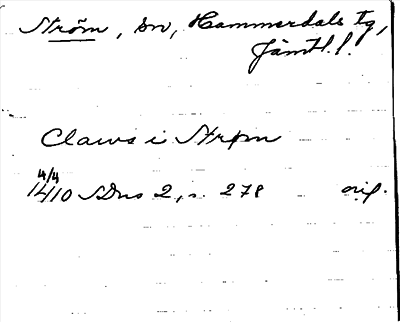 Ström, sn, Hammerdals tg,
Jämtl. l.
Claws i Strøm
4/4
1410 SDns 2, s. 278 orig.